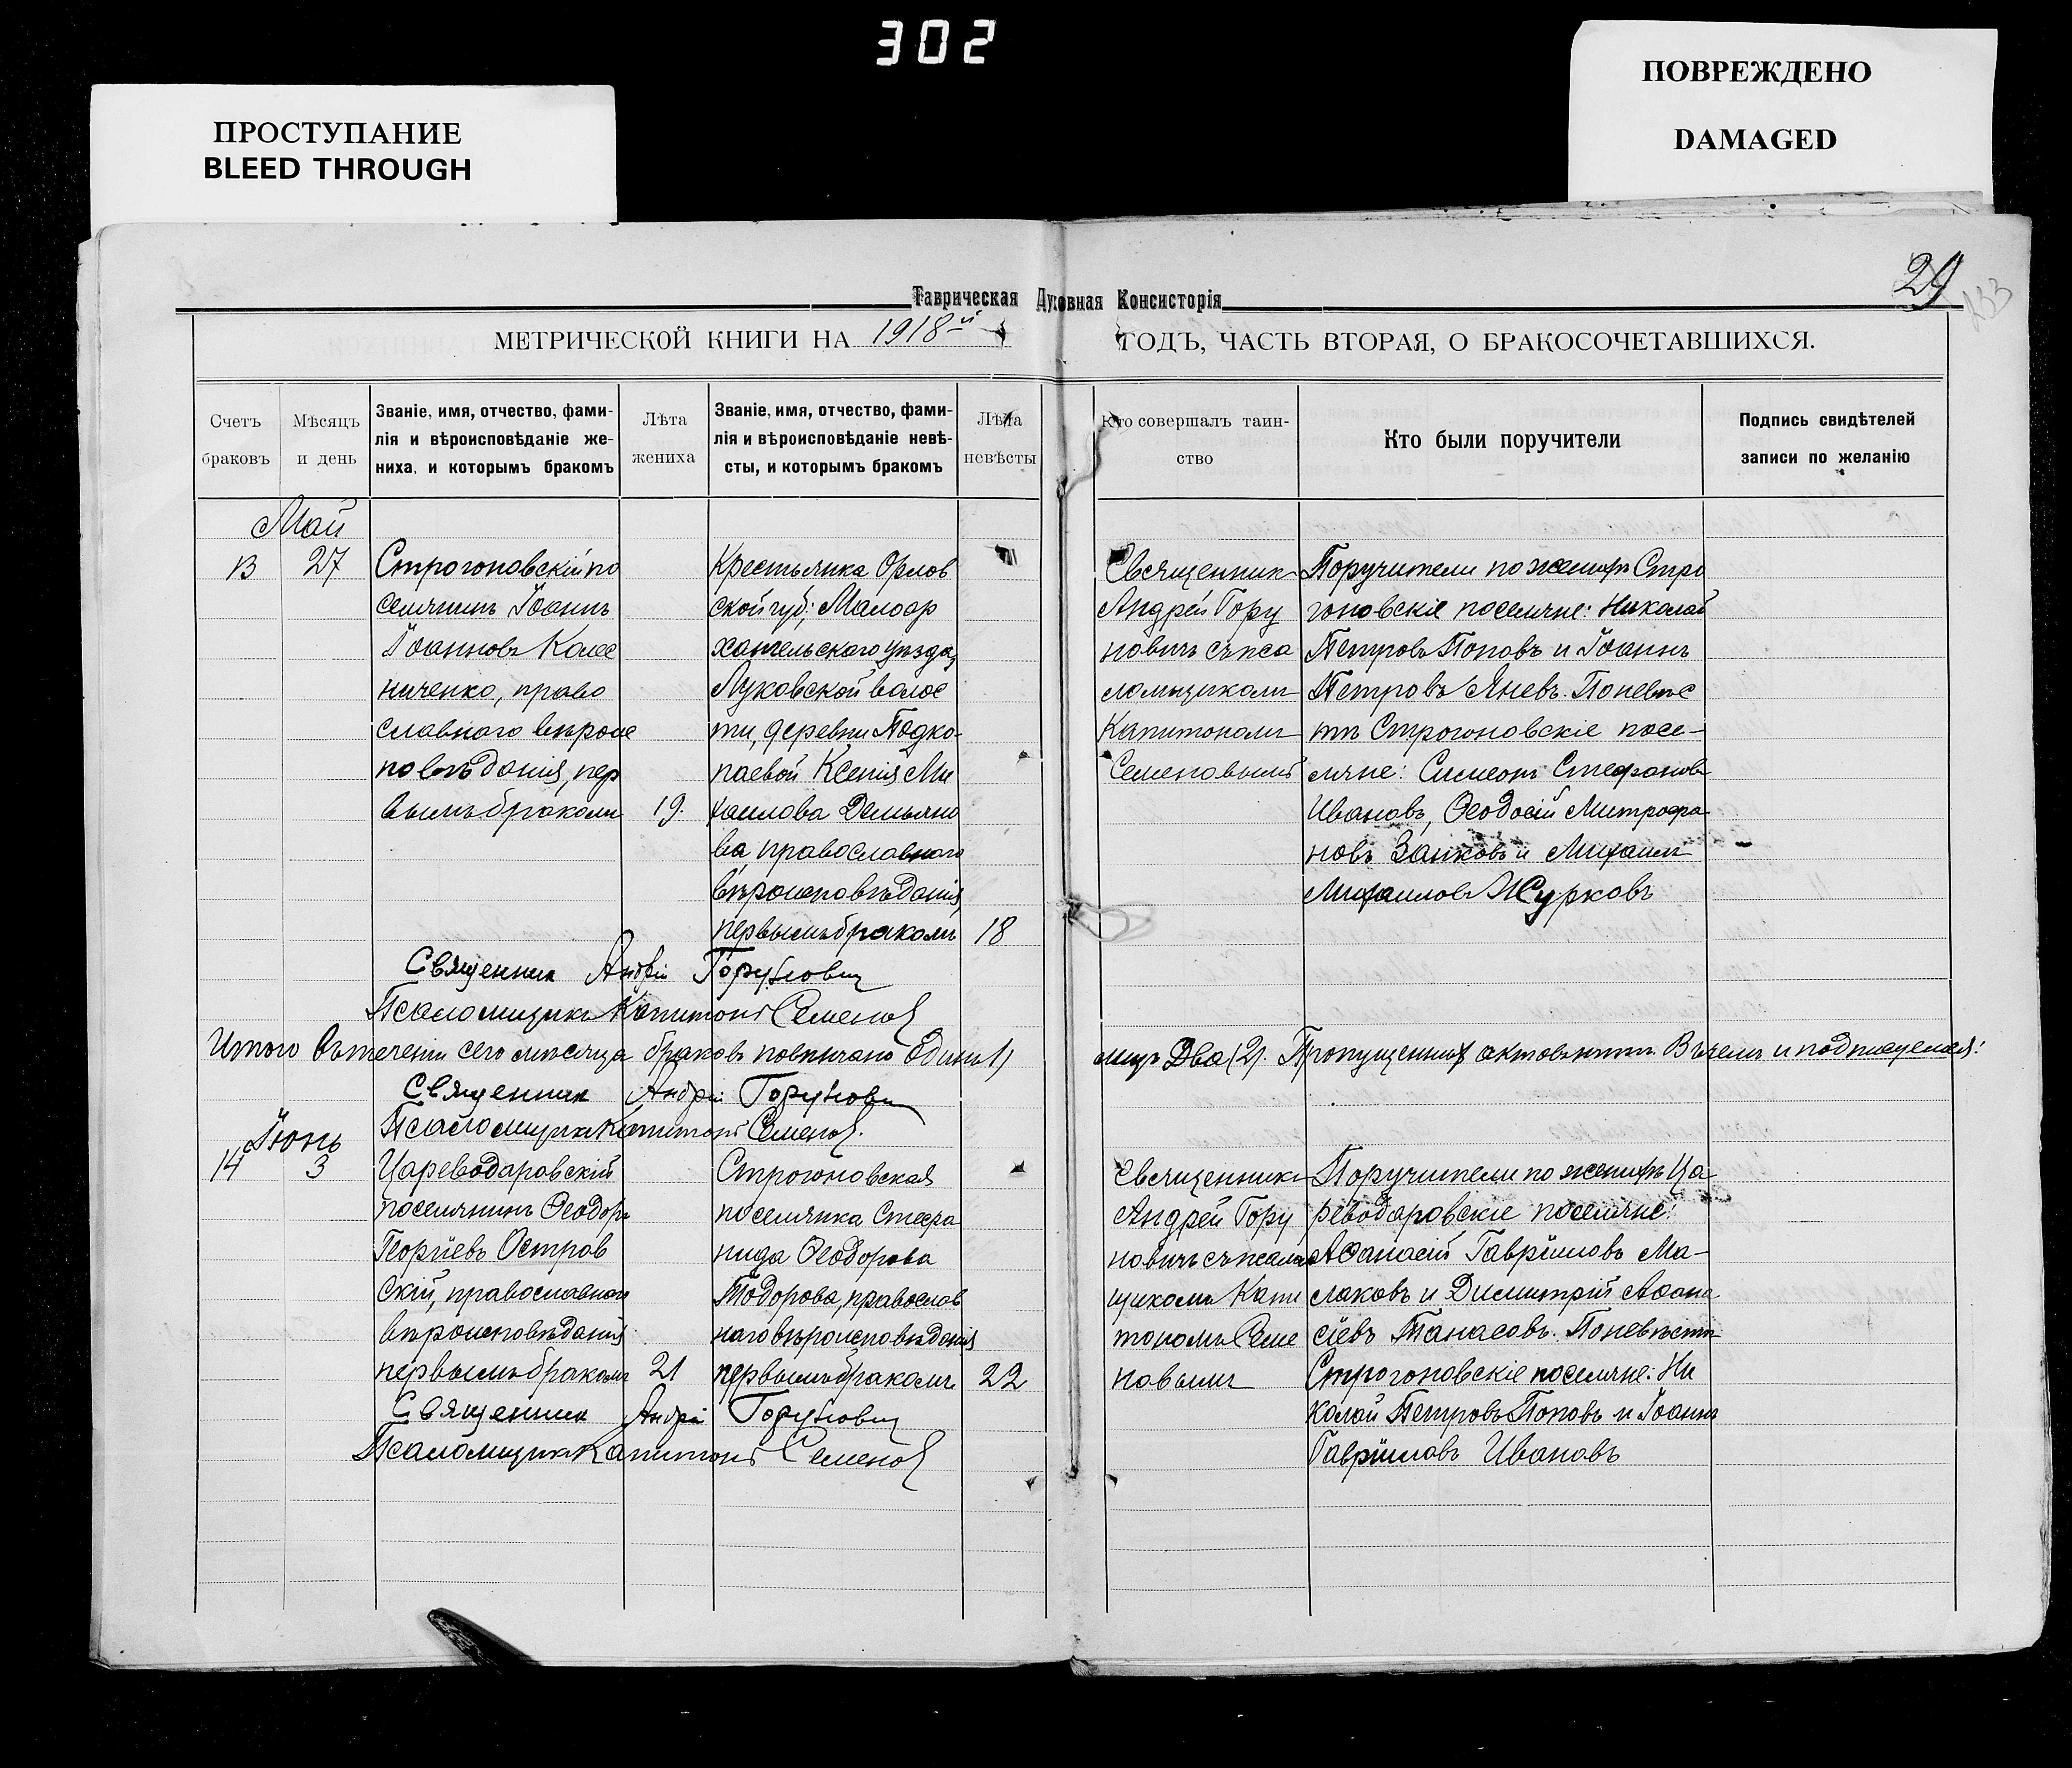 302
ПРОСТУПАНИЕ
BLEED THROUGH
ПОВРЕЖДЕНО
DAMAGED
29
133
Таврическая Духовная Консисторія
МЕТРИЧЕСКОЙ КНИГИ НА 1918й ГОДЪ, ЧАСТЬ ВТОРАЯ, О БРАКОСОЧЕТАВШИХСЯ.
Счетъ
браковъ
Мѣсяцъ
и день
Званіе, имя, отчество, фами-
лія и вѣроисповѣданіе же-
ниха, и которымъ бракомъ
Лѣта
жениха
Званіе, имя, отчество, фами-
лія и вѣроисповѣданіе невѣ-
сты, и которымъ бракомъ
Лѣта
невѣсты
Кто совершалъ таин-
ство
Кто были поручители
Подпись свидѣтелей
записи по желанію
Май
13
27
Строгоновскій по
селянинъ Іоаннъ
Іоанновъ Колес
ниченко, право
славнаго вѣроис
повѣданія, пер
вымъ бракомъ
19.
Крестьянка Орлов
ской губ., Малоар
хангельского уѣзда,
Луковской волос
ти, деревни Подко-
паевой Ксенія Ми
хаилова Демьяно
ва, православнаго
вѣроисповѣданія,
первымъ бракомъ
18
Священник
Андрей Гору
новичъ съ пса
ломщикомъ
Капитономъ
Семеновымъ
Поручители по женихѣ Стро
гоновскіе поселяне: Николай
Петровъ Поповъ и Іоаннъ
Петровъ Яневъ. По невѣс
тѣ Строгоновскіе посе-
ляне: Симеонъ Стефановъ
Ивановъ, Ѳеодосій Митрофа
новъ Заиковъ и Михаилъ
Михаиловъ Журковъ
Священник Андрій Горунович
Псаломщикъ Капитонъ Семенов
Итого въ теченіи сего мѣсяца браковъ повѣнчано Одинъ 1)
лицъ Два (2). Пропущенныхъ актовъ нѣтъ. Въ чемъ и подписуемся:
Священник Андрій Горунович
Псаломщикъ Капитонъ Семенов.
Іюнь
14
3
Цареводаровскій
поселянинъ Ѳеодоръ
Георгіевъ Остров
скій, православнаго
вѣроисповѣданія
первымъ бракомъ
21
Строгоновская
поселянка Стефа
нида Ѳеодорова
Тодорова, православ
наго вѣроисповѣданія
первымъ бракомъ
22
Священникъ
Андрей Гору
новичъ съ псалом
щикомъ Капи
тономъ Семе
новымъ
Поручители по женихѣ Ца-
реводаровскіе поселяне:
Аѳанасій Гавріиловъ Ма-
слаковъ и Димитрій Аѳана
сіевъ Танасовъ. По невѣстѣ
Строгоновскіе поселяне: Ни
колай Петровъ Поповъ и Іоаннъ
Гавріиловъ Ивановъ
Священник Андрій Горунович
Псаломщикъ Капитонъ Семенов